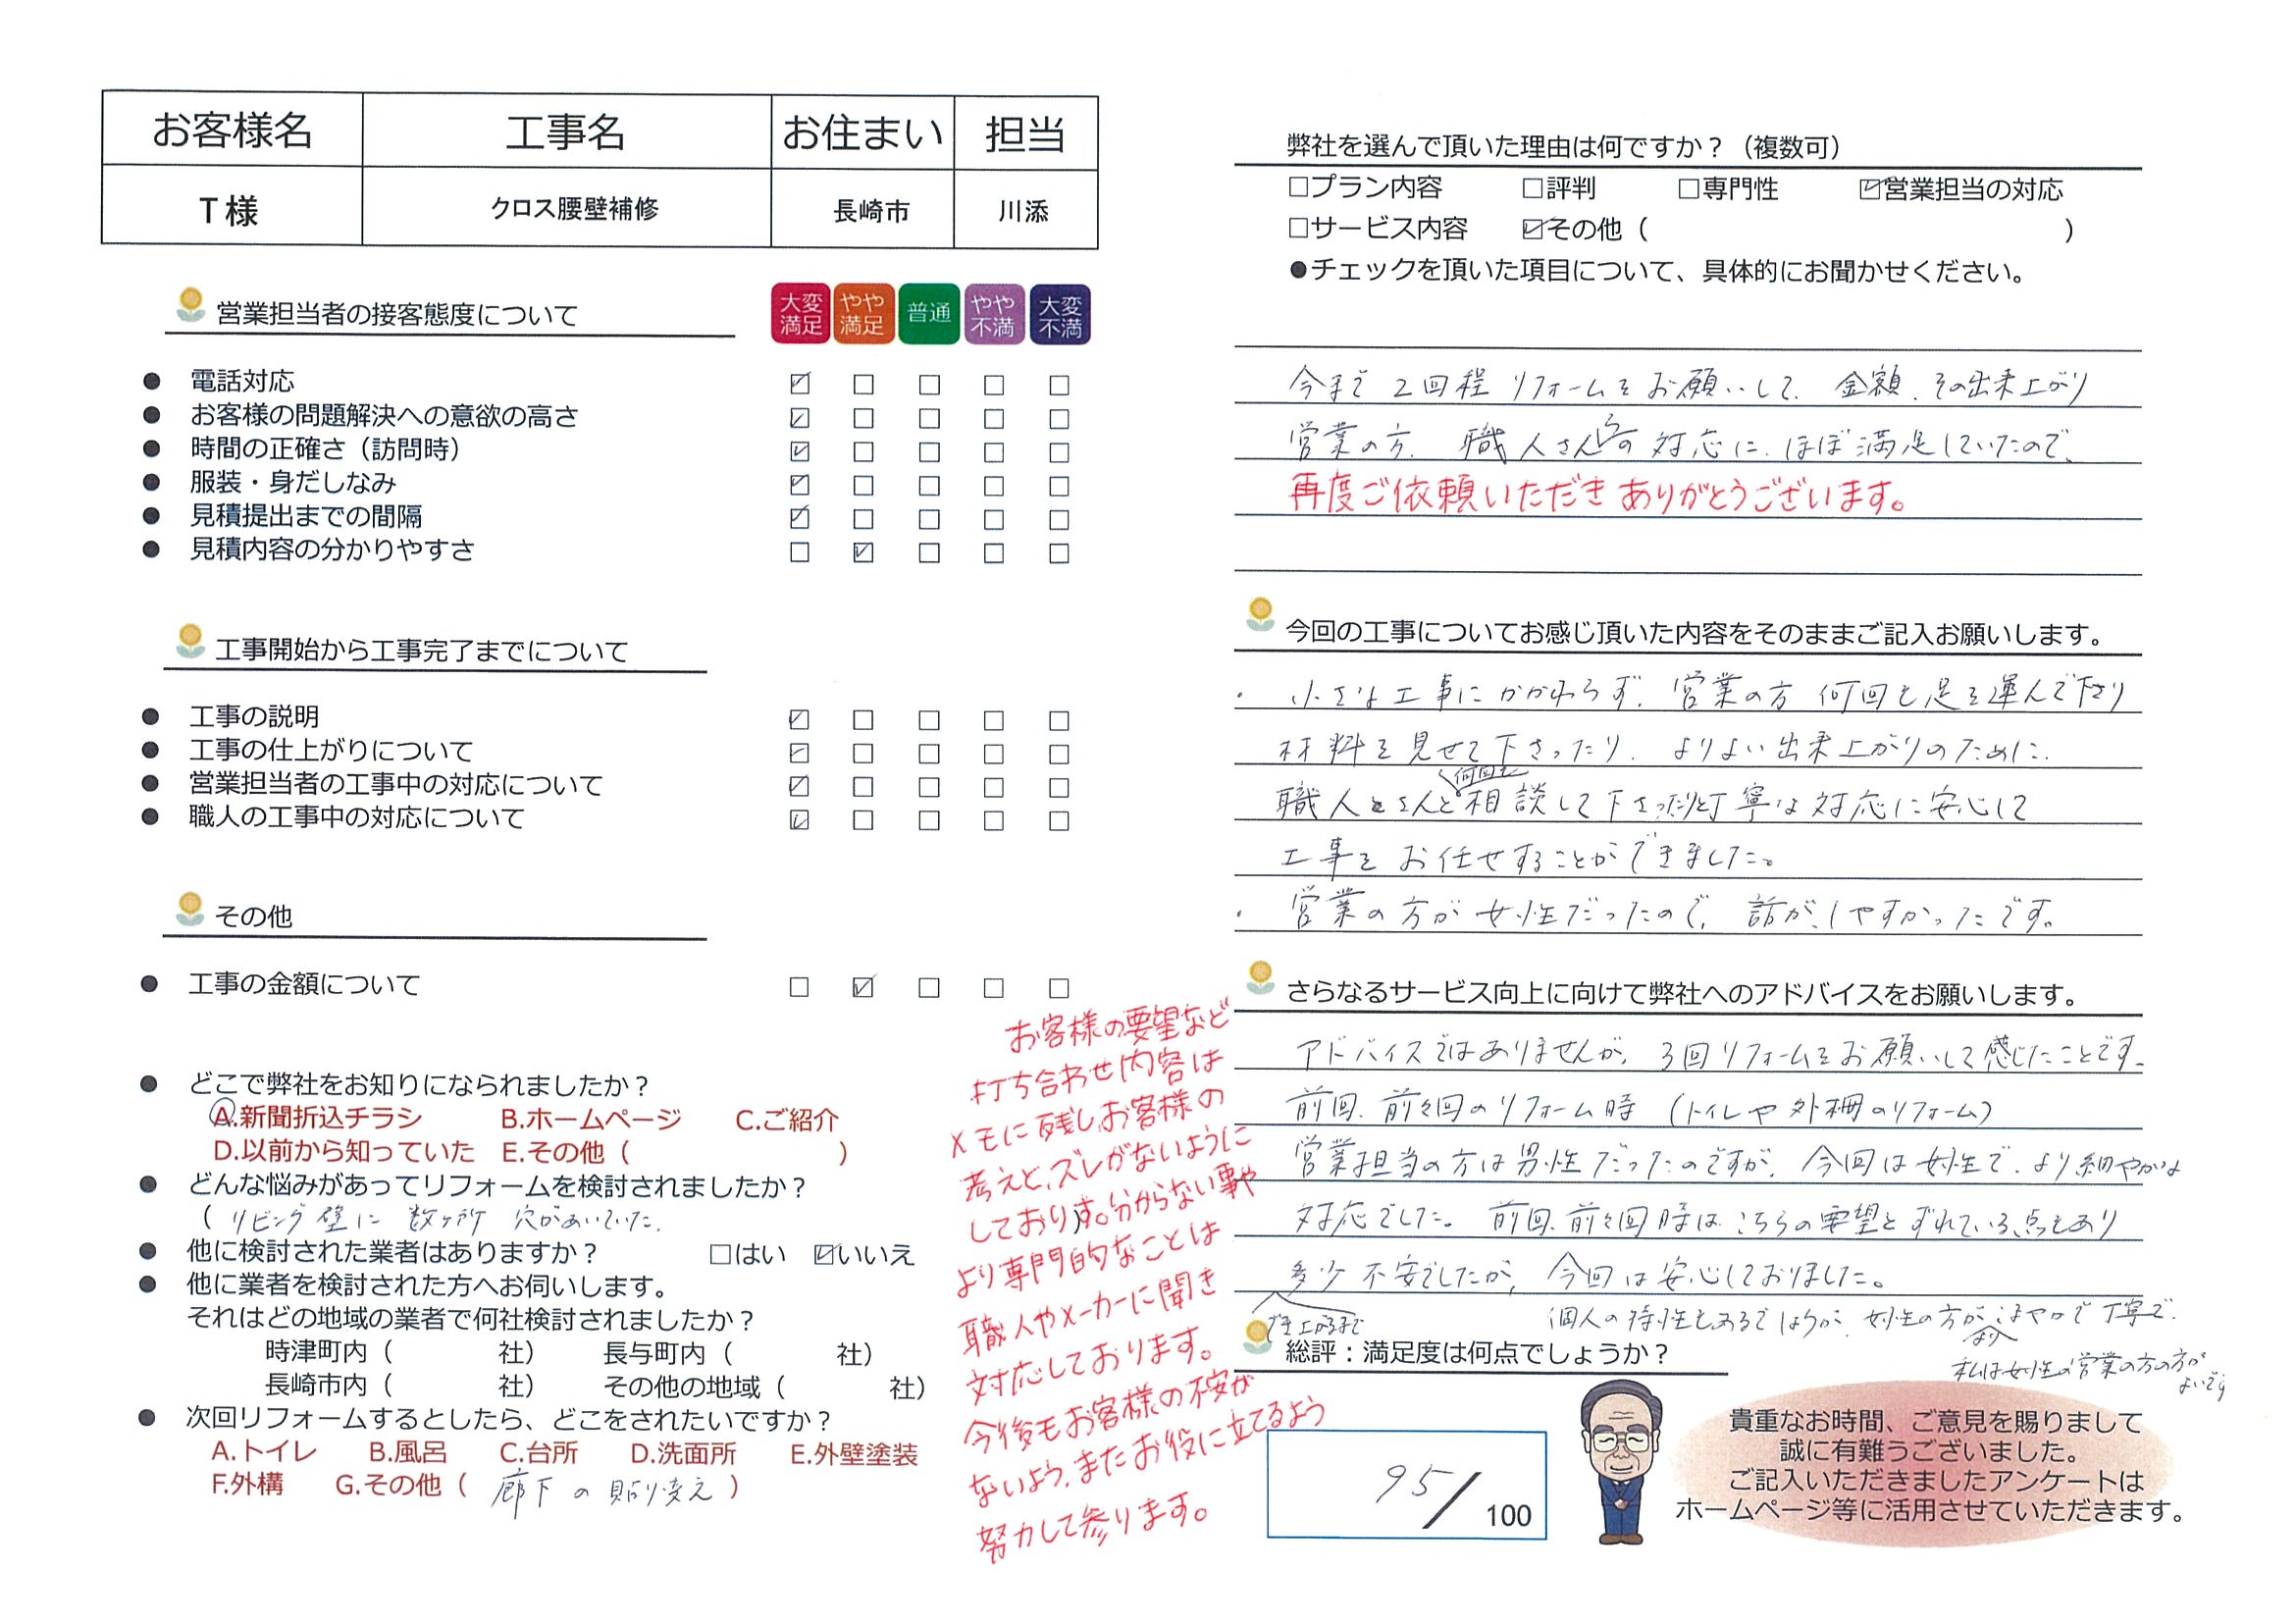 お客様名 工事名 お住まい 担当
T様 クロス腰壁補修 長崎市 川添
営業担当者の接客態度について
大変満足 やや満足 普通 やや不満 大変不満
● 電話対応 ☑ □ □ □ □
● お客様の問題解決への意欲の高さ ☑ □ □ □ □
● 時間の正確さ（訪問時） ☑ □ □ □ □
● 服装・身だしなみ ☑ □ □ □ □
● 見積提出までの間隔 ☑ □ □ □ □
● 見積内容の分かりやすさ □ ☑ □ □ □
工事開始から工事完了までについて
● 工事の説明 ☑ □ □ □ □
● 工事の仕上がりについて ☑ □ □ □ □
● 営業担当者の工事中の対応について ☑ □ □ □ □
● 職人の工事中の対応について ☑ □ □ □ □
その他
● 工事の金額について □ ☑ □ □ □
● どこで弊社をお知りになられましたか？
A.新聞折込チラシ B.ホームページ C.ご紹介
D.以前から知っていた E.その他（ ）
● どんな悩みがあってリフォームを検討されましたか？
（リビング壁に 数ヶ所 穴があいていた.
● 他に検討された業者はありますか？ □はい ☑いいえ
● 他に業者を検討された方へお伺いします。
それはどの地域の業者で何社検討されましたか？
時津町内（ 社） 長与町内（ 社）
長崎市内（ 社） その他の地域（ 社）
● 次回リフォームするとしたら、どこをされたいですか？
A.トイレ B.風呂 C.台所 D.洗面所 E.外壁塗装
F.外構 G.その他（ 廊下の貼り変え ）
お客様の要望など
打ち合わせ内容は
メモに残し、お客様の
考えと、ズレがないように
しております。分からない事や
より専門的なことは
職人やメーカーに聞き
対応しております。
今後もお客様の不安が
ないよう、またお役に立てるよう
努力して参ります。
弊社を選んで頂いた理由は何ですか？（複数可）
□プラン内容 □評判 □専門性 ☑営業担当の対応
□サービス内容 ☑その他（ ）
●チェックを頂いた項目について、具体的にお聞かせください。
今まで 2回程 リフォームをお願いして、金額、その出来上がり
営業の方、職人さんの対応に、ほぼ満足していたので、
再度ご依頼いただき ありがとうございます。
今回の工事についてお感じ頂いた内容をそのままご記入お願いします。
・小さな工事にかかわらず、営業の方 何回も足を運んで下さり
材料を見せて下さったり、よりよい出来上がりのために、
職人さんと何回も相談して下さったりと丁寧な対応に安心して
工事をお任せすることができました。
・営業の方が女性だったので、話が、しやすかったです。
さらなるサービス向上に向けて弊社へのアドバイスをお願いします。
アドバイスではありませんが、3回リフォームをお願いして感じたことです。
前回、前々回のリフォーム時（トイレや外柵のリフォーム）
営業担当の方は男性だったのですが、今回は女性で、より細やかな
対応でした。前回、前々回時は、こちらの要望とずれている点もあり
でき上がるまで
多少 不安でしたが、今回は安心しておりました。
個人の特性もあるでしょうが、女性の方がこまやかで丁寧で、
私は女性の営業の方の方が
よいです
総評：満足度は何点でしょうか？
95/100
貴重なお時間、ご意見を賜りまして
誠に有難うございました。
ご記入いただきましたアンケートは
ホームページ等に活用させていただきます。